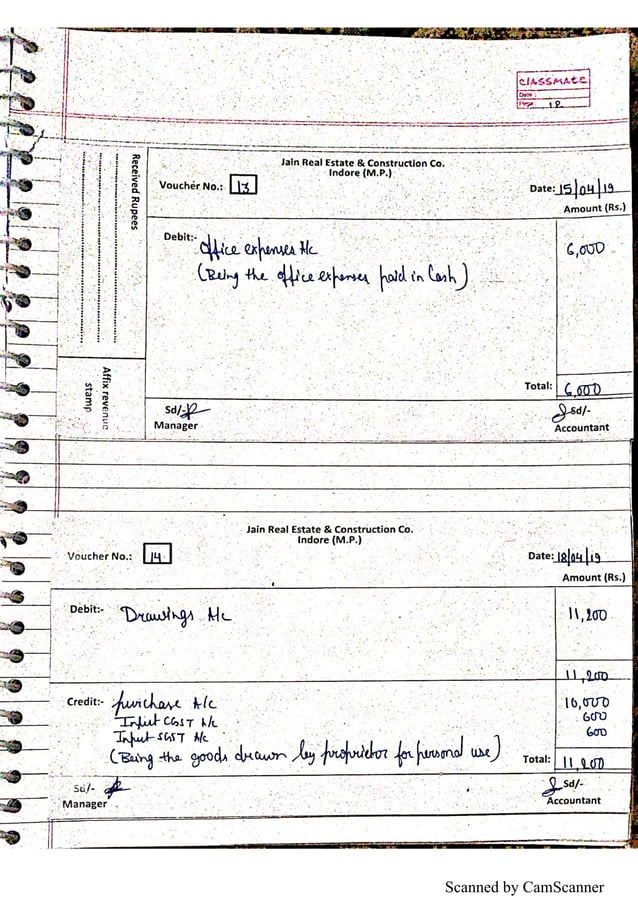 CLASSMATE
Date :
Page 18
Received Rupees
Affix revenue
stamp
Jain Real Estate & Construction Co.
Indore (M.P.)
Voucher No.: 13
Date: 15/04/19
Amount (Rs.)
Debit:-
Office expenses A/c 6,000
(Being the office expenses paid in Cash)
Total: 6,000
Sd/- Sd/-
Manager Accountant
Jain Real Estate & Construction Co.
Indore (M.P.)
Voucher No.: 14 Date: 18/04/19
Amount (Rs.)
Debit:- Drawings A/c 11,200
11,200
Credit:- purchase A/c 10,000
Input CGST A/c 600
Input SGST A/c 600
(Being the goods drawn by proprietor for personal use) Total: 11,200
Sd/- Sd/-
Manager Accountant
Scanned by CamScanner